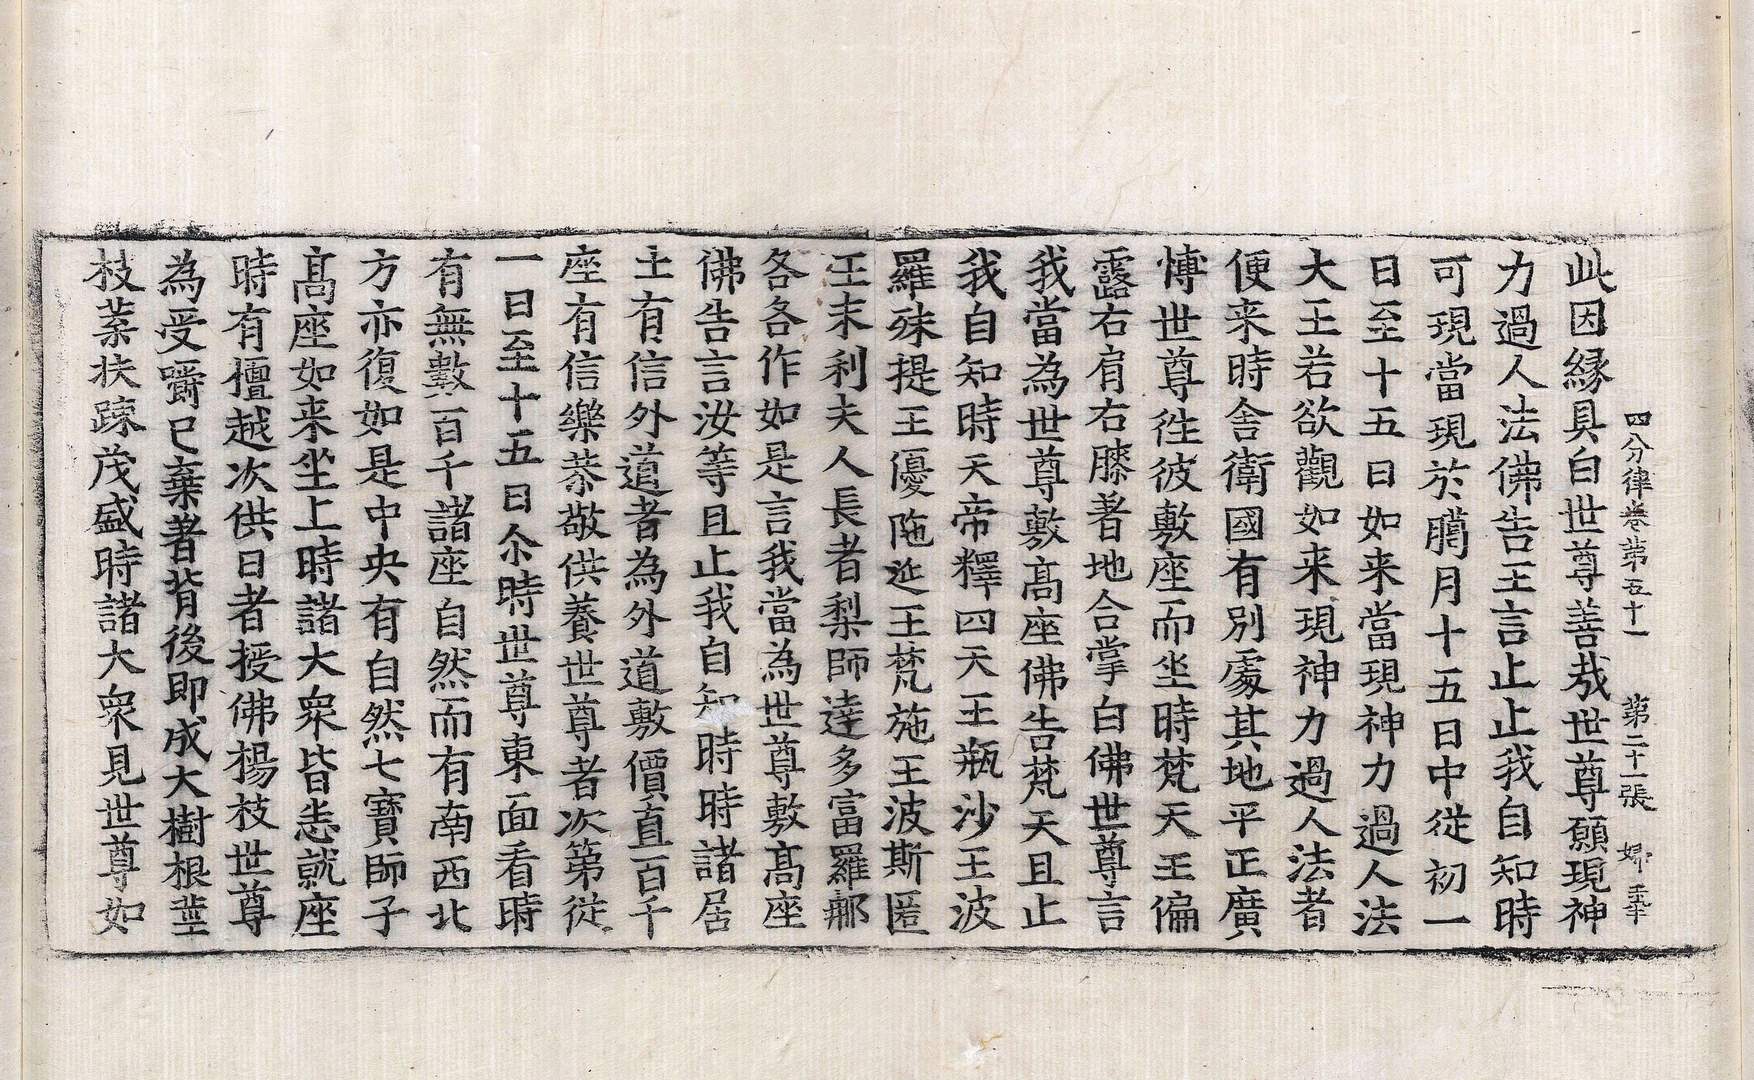 四分律卷第五十一　第二十一張　婦
此因緣具白世尊善哉世尊願現神
力過人法佛告王言止止我自知時
可現當現於臈月十五日中從初一
日至十五日如来當現神力過人法
大王若欲觀如来現神力過人法者
便来時舍衛國有別處其地平正廣
博世尊徃彼敷座而坐時梵天王偏
露右肩右膝著地合掌白佛世尊言
我當為世尊敷髙座佛告梵天且止
我自知時天帝釋四天王瓶沙王波
羅殊提王優陁延王梵施王波斯匿
王末利夫人長者梨師達多富羅那
各各作如是言我當為世尊敷髙座
佛告言汝等且止我自知時時諸居
士有信外道者為外道敷價直百千
座有信樂恭敬供養世尊者次第從
一日至十五日尒時世尊東面看時
有無數百千諸座自然而有南西北
方亦復如是中央有自然七寶師子
髙座如来坐上時諸大衆皆悉就座
時有檀越次供日者授佛楊枝世尊
為受嚼已棄著背後即成大樹根莖
枝葉扶踈茂盛時諸大衆見世尊如